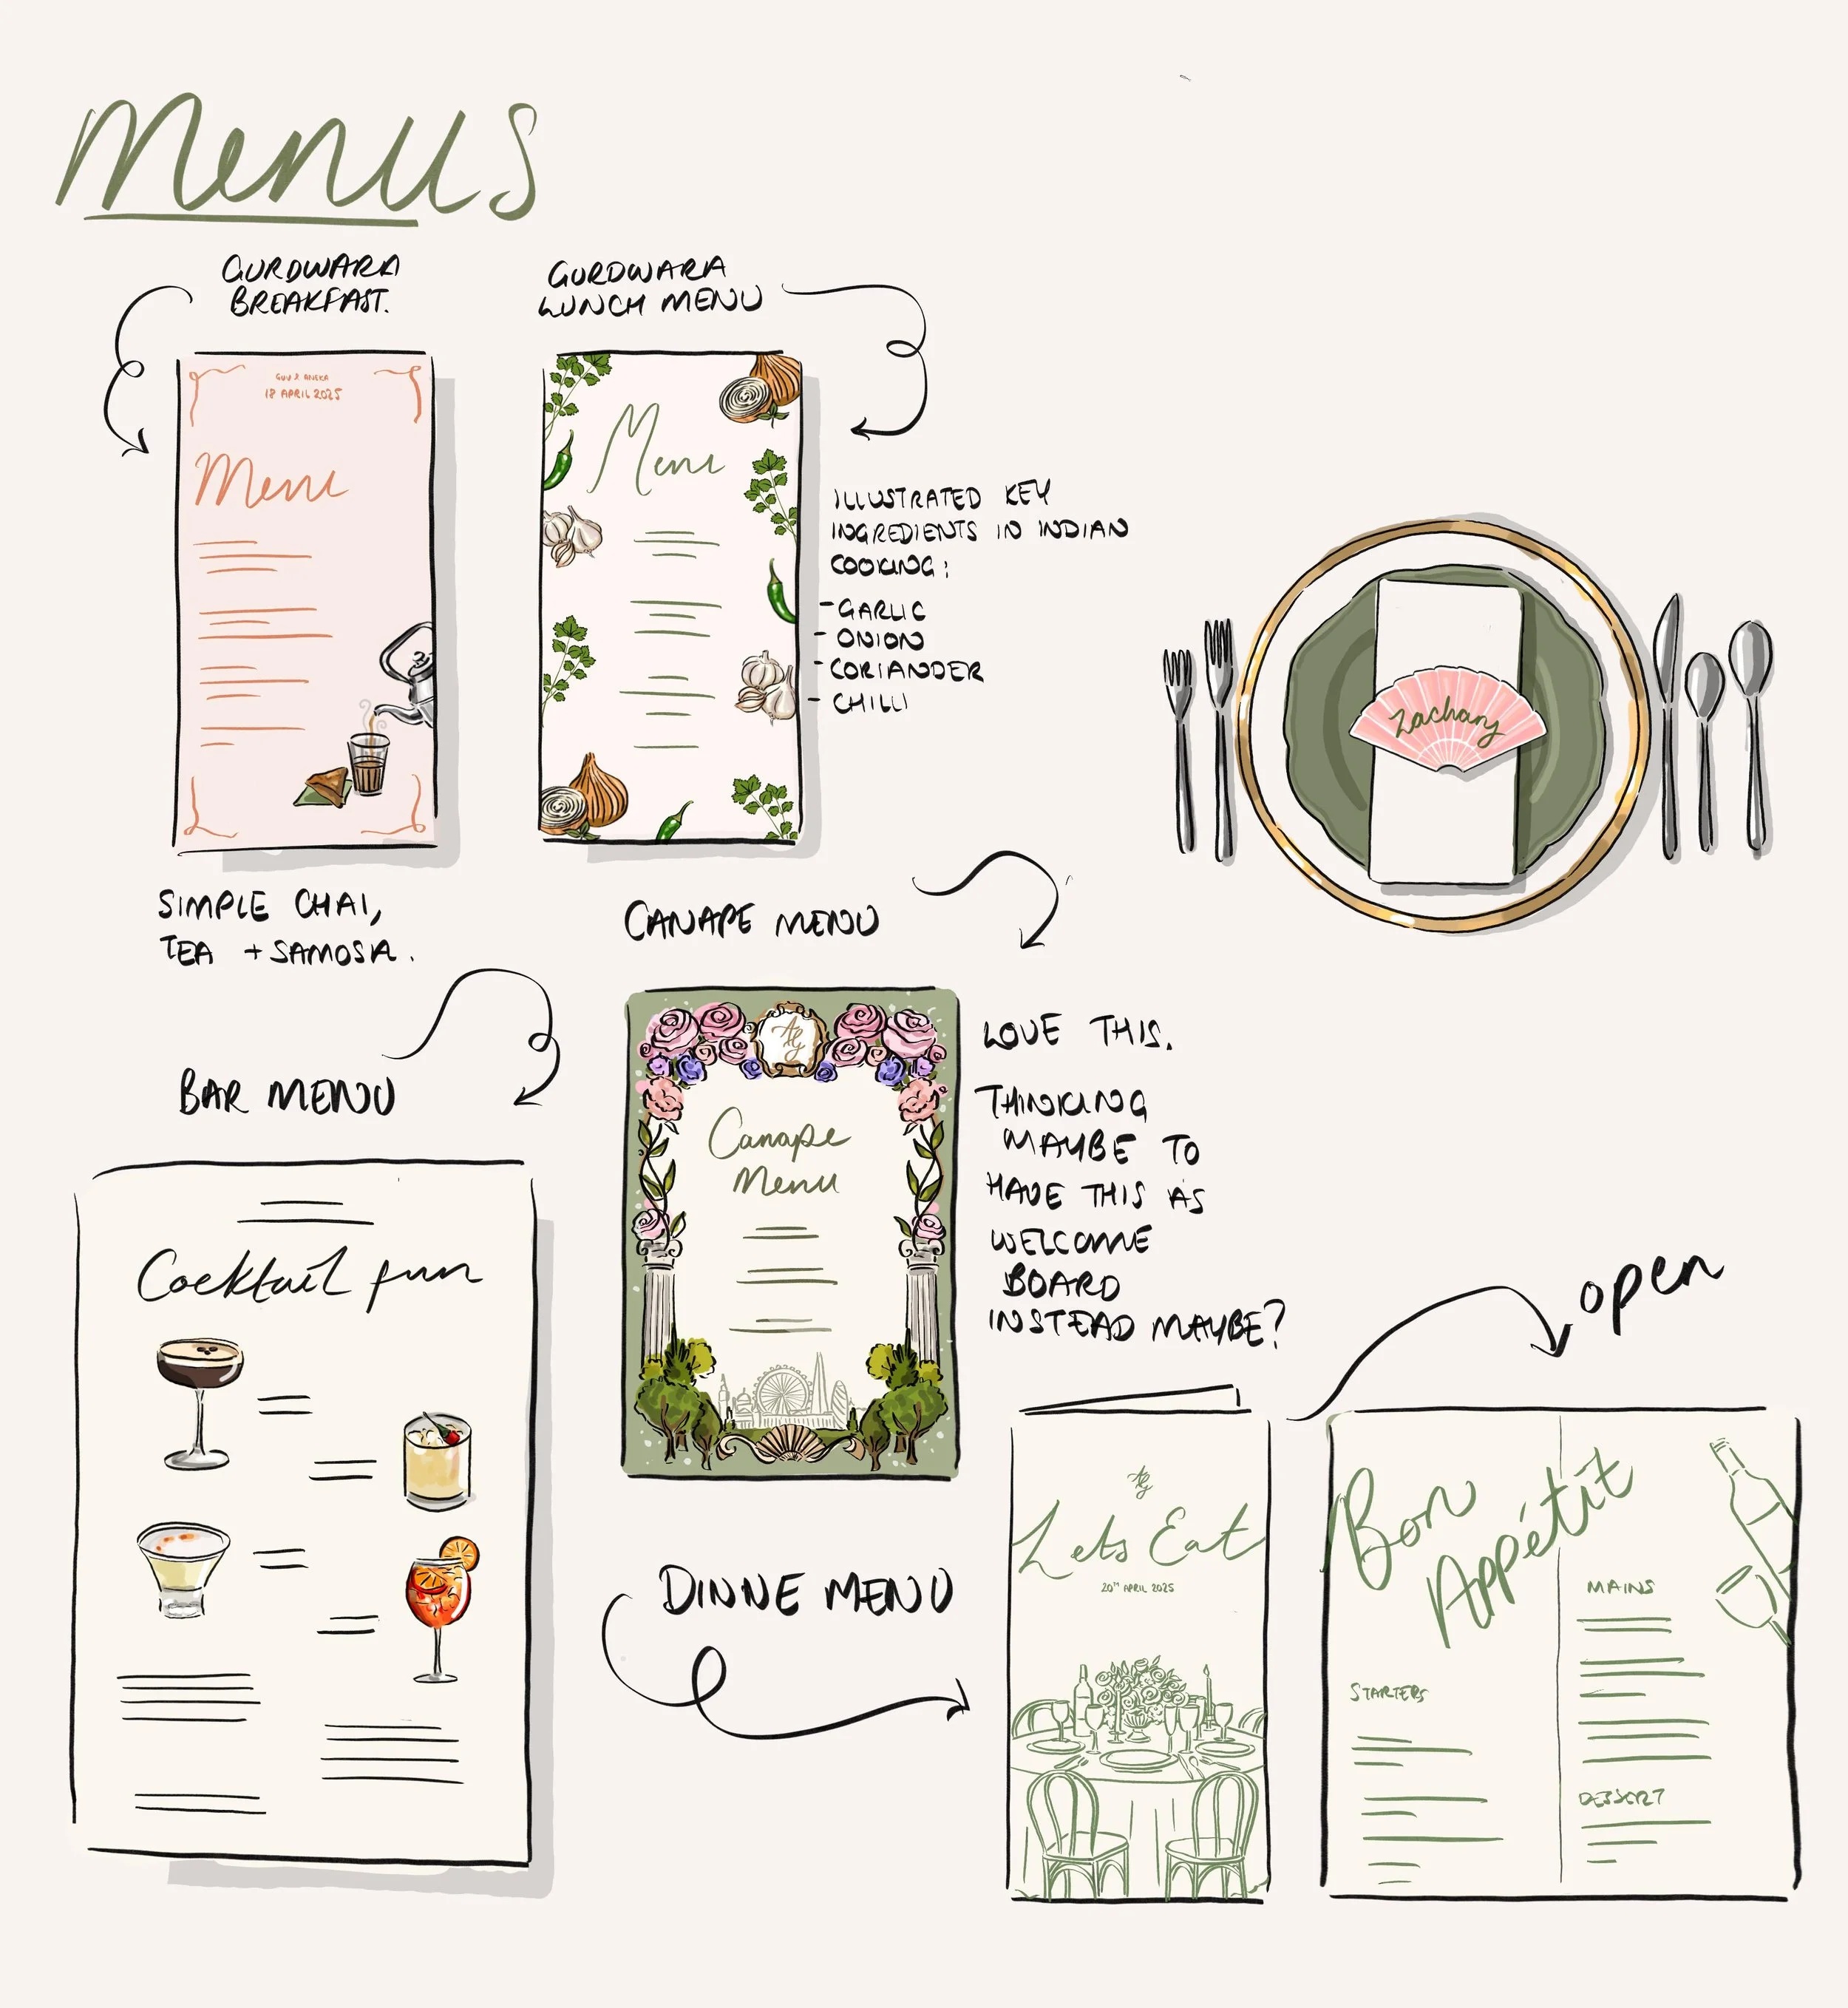 Menus
GURDWARA
BREAKFAST.
18 APRIL 2025
Menu
SIMPLE CHAI,
TEA + SAMOSA.
GURDWARA
LUNCH MENU
Menu
ILLUSTRATED KEY
INGREDIENTS IN INDIAN
COOKING:
- GARLIC
- ONION
- CORIANDER
- CHILLI
Zachary
CANAPE MENU
Canape
Menu
LOVE THIS.
THINKING
MAYBE TO
HAVE THIS AS
WELCOME
BOARD
INSTEAD MAYBE?
BAR MENU
Cocktail fun
DINNE MENU
Lets Eat
20TH APRIL 2025
open
Bon
Appétit
STARTERS
MAINS
DESSERT